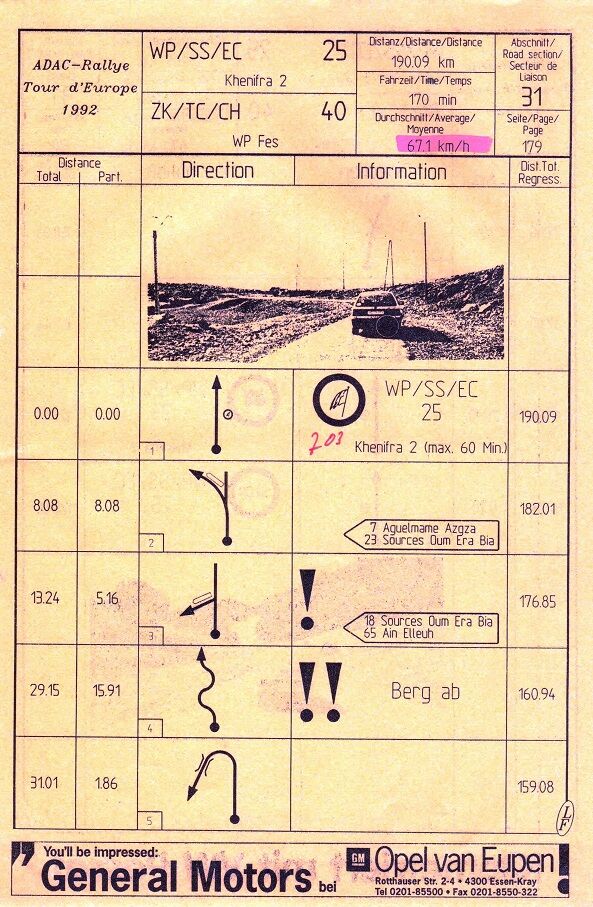 ADAC-Rallye
Tour d'Europe
1992
WP/SS/EC 25
Khenifra 2
ZK/TC/CH 40
WP Fes
Distanz/Distance/Distance
190.09 km
Fahrzeit/Time/Temps
170 min
Durchschnitt/Average/
Moyenne
67.1 km/h
Abschnitt/
Road section/
Secteur de
Liaison
31
Seite/Page/
Page
179
Distance
Total Part.
Direction
Information
Dist.Tot.
Regress.
0.00 0.00
1
WP/SS/EC
25
703
Khenifra 2 (max. 60 Min.)
190.09
8.08 8.08
2
7 Aguelmame Azgza
23 Sources Oum Era Bia
182.01
13.24 5.16
3
!
18 Sources Oum Era Bia
65 Ain Elleuh
176.85
29.15 15.91
4
!! Berg ab
160.94
31.01 1.86
5
159.08
LF
You'll be impressed:
General Motors bei
GM Opel van Eupen!
Rotthauser Str. 2-4 • 4300 Essen-Kray
Tel 0201-85500 • Fax 0201-8550-322